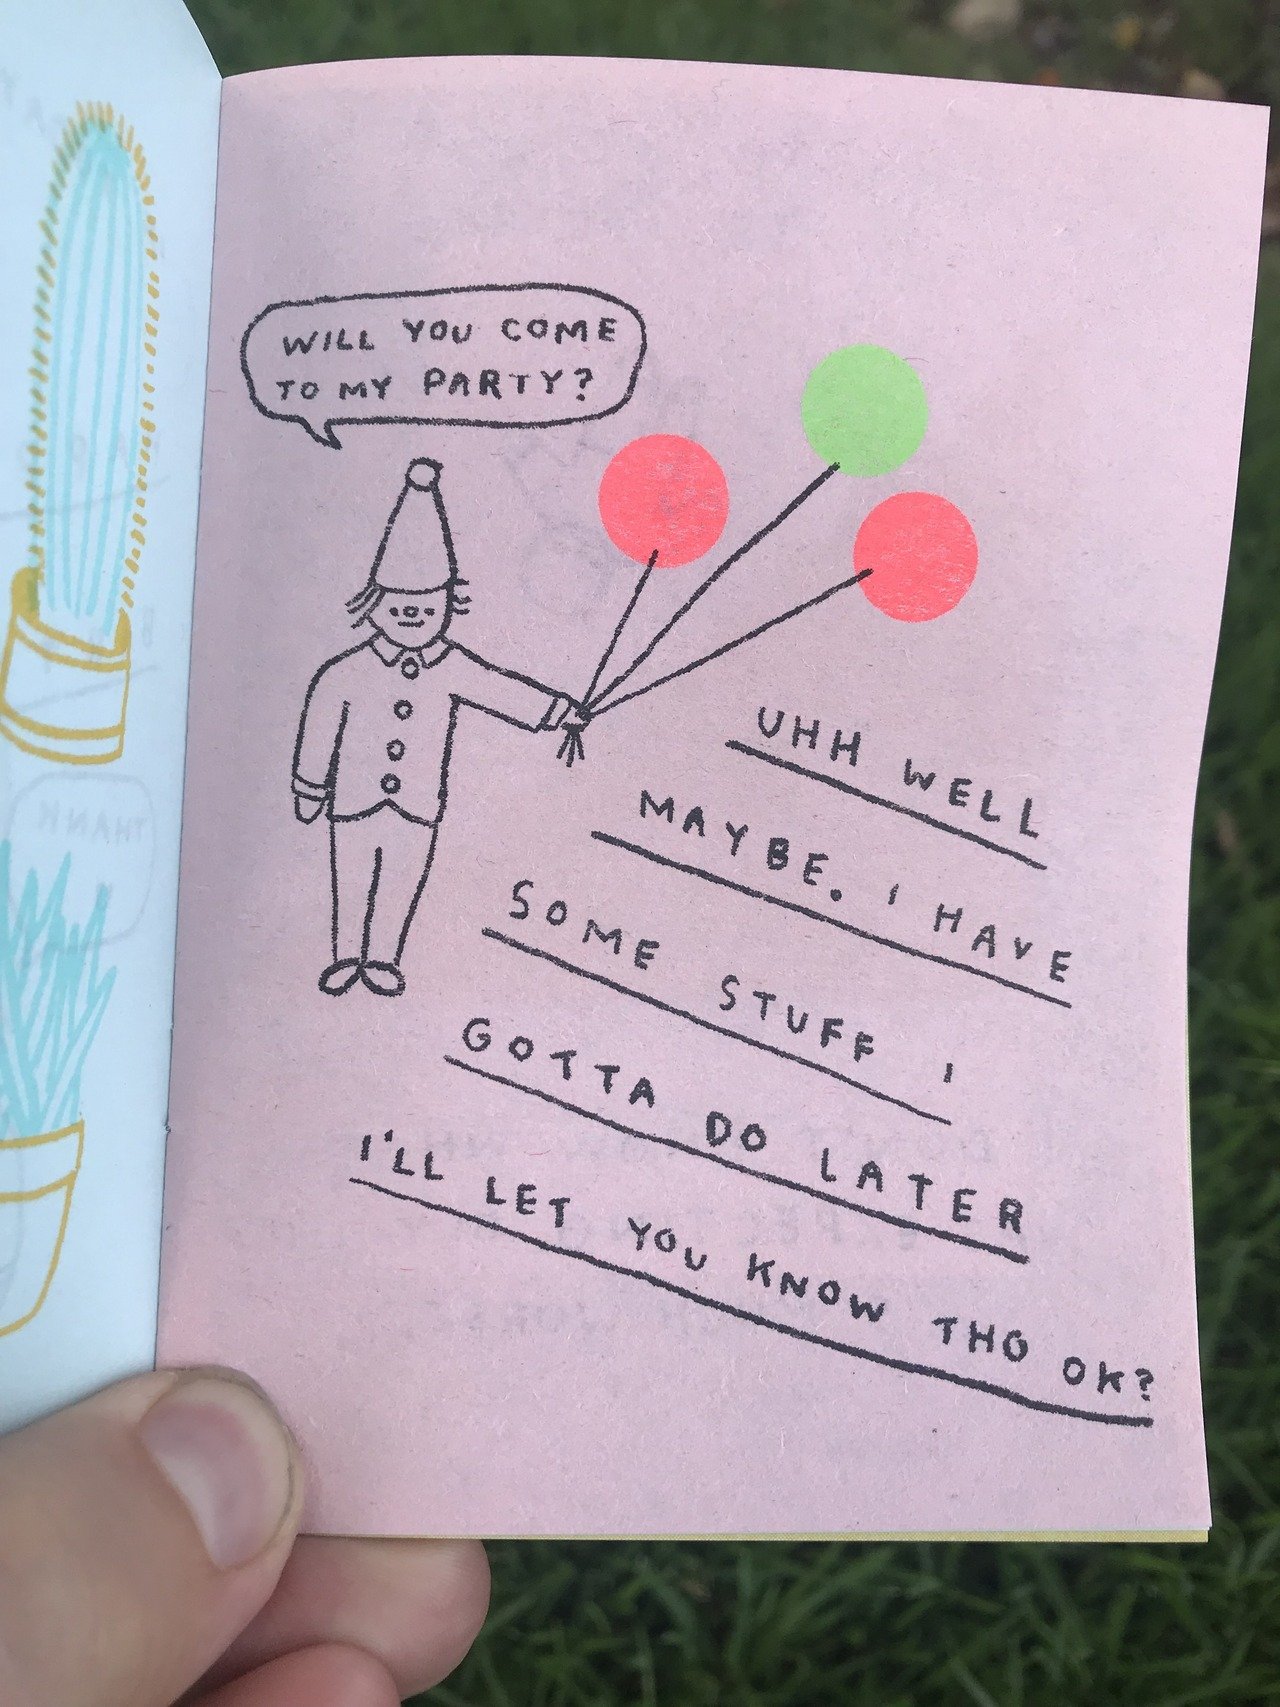 WILL YOU COME
TO MY PARTY?
UHH WELL
MAYBE. I HAVE
SOME STUFF I
GOTTA DO LATER
I'LL LET YOU KNOW THO OK?